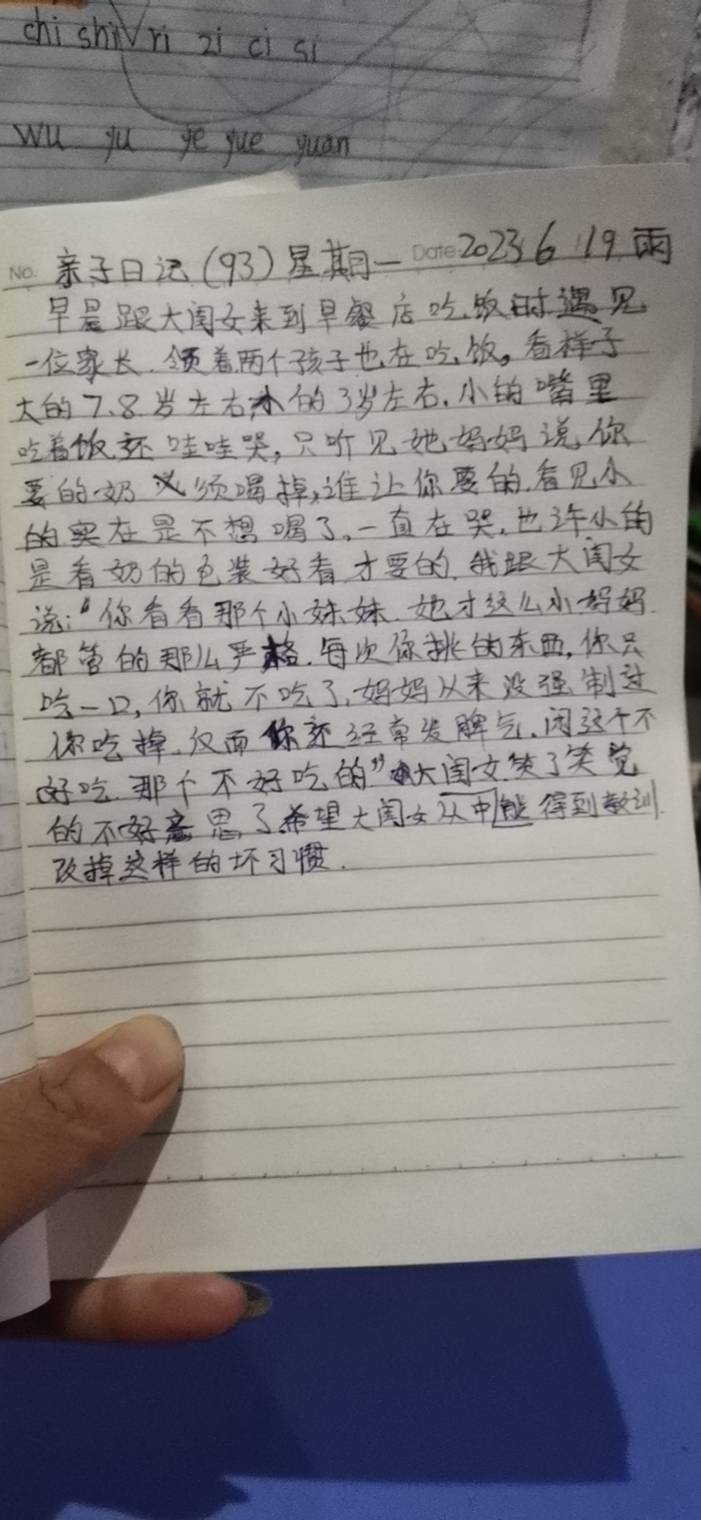 chi shi ri zi ci si
wu yu ye yue yuan
No. 亲子日记(93)星期一 Date 2023 6 19 雨
早晨跟大闺女来到早餐店吃饭时遇见
一位家长.领着两个孩子也在吃饭。看样子
大的7.8岁左右,小的3岁左右.小的嘴里
吃着饭还哇哇哭,只听见她妈妈说你
要的奶必须喝掉,谁让你要的.看见小
的实在是不想喝了.一直在哭.也许小的
是看奶的包装好看才要的.我跟大闺女
说:"你看看那个小妹妹.她才这么小妈妈
都管的那么严格.每次你挑的东西,你只
吃一口,你就不吃了,妈妈从来没强制过
你吃掉.反而你还经常发脾气.闲这个不
好吃.那个不好吃的"大闺女笑了笑觉
的不好意思了希望大闺女从中能得到教训.
改掉这样的坏习惯.